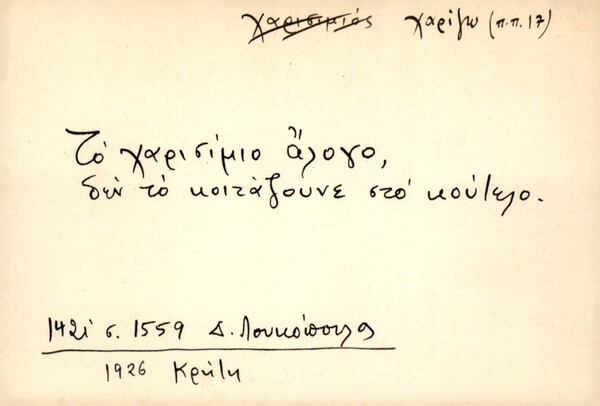 χαρισιμιός χαρίζω (π.π. 17)
Τὸ χαρισίμιο ἄλογο,
δὲν τὸ κοιτάζουνε στὸ κούτελο.
1421 σ. 1559 Δ. Λουκόπουλος
1926 Κρήτη